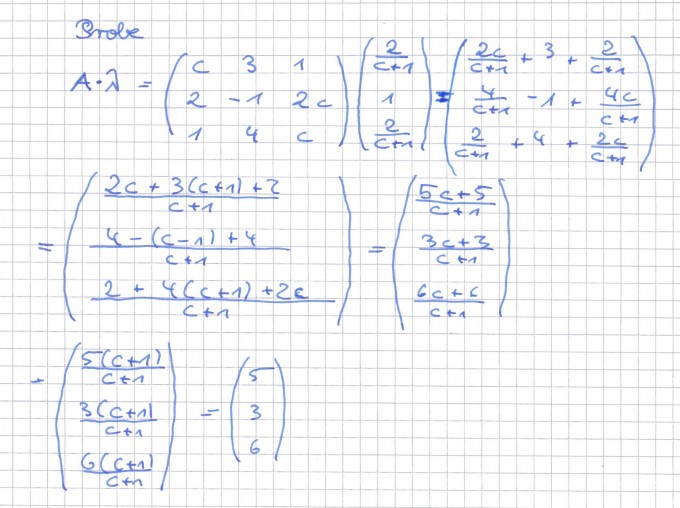 Probe
A·λ = ( c 3 1 ; 2 -1 2c ; 1 4 c ) ( 2/(c+1) ; 1 ; 2/(c+1) ) = ( 2c/(c+1) + 3 + 2/(c+1) ; 4/(c+1) - 1 + 4c/(c+1) ; 2/(c+1) + 4 + 2c/(c+1) )
= ( (2c + 3(c+1) + 2)/(c+1) ; (4 - (c-1) + 4)/(c+1) ; (2 + 4(c+1) + 2c)/(c+1) ) = ( (5c+5)/(c+1) ; (3c+3)/(c+1) ; (6c+6)/(c+1) )
- ( 5(c+1)/(c+1) ; 3(c+1)/(c+1) ; 6(c+1)/(c+1) ) = ( 5 ; 3 ; 6 )